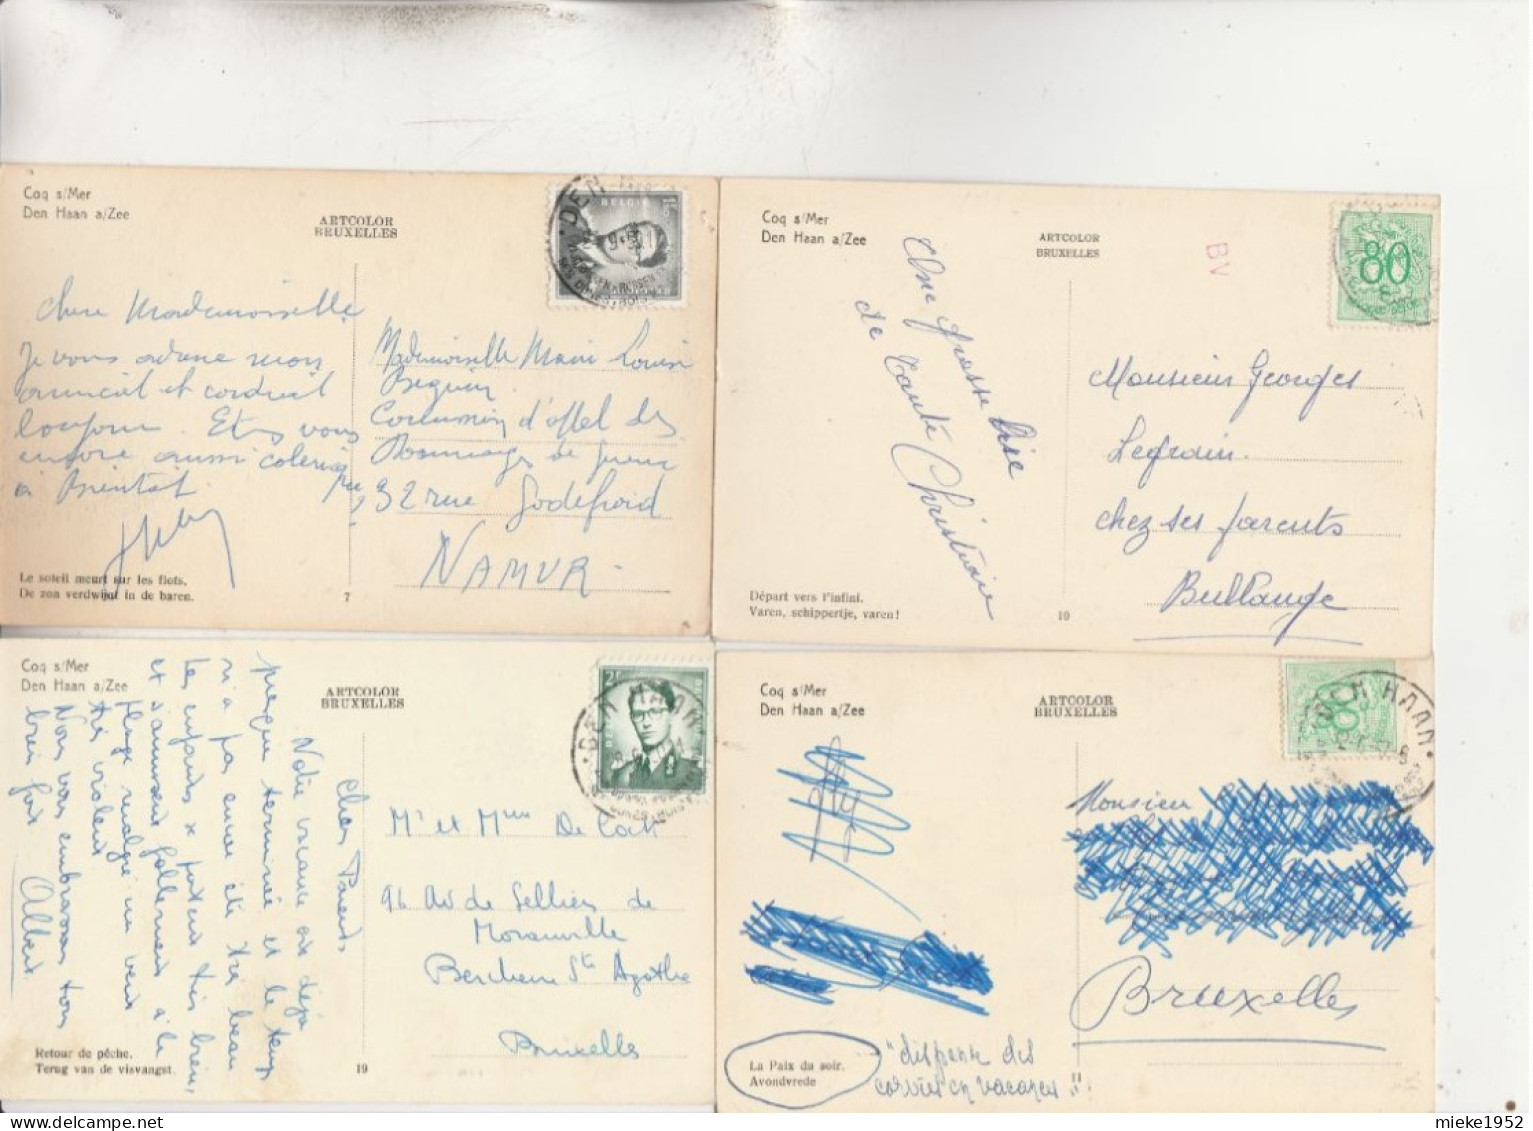 Coq s/Mer
Den Haan a/Zee
ARTCOLOR
BRUXELLES
DEN
BELGIE
Chere Mademoiselle
Je vous adresse mon
amical et cordial
toujours. Etes vous
encore aussi
à
Mademoiselle Marie Louise
Beguin
Commission d'
Dommages de guerre
32 rue Godefroid
NAMUR
Le soleil meurt sur les flots.
De zon verdwijnt in de baren.
7
Coq s/Mer
Den Haan a/Zee
ARTCOLOR
BRUXELLES
BV
80
Une grosse bise
de Tante Christiane
Monsieur Georges
Legrain.
chez ses parents
Bullange
Départ vers l'infini.
Varen, schippertje, varen!
10
Coq s/Mer
Den Haan a/Zee
ARTCOLOR
BRUXELLES
DEN HAAN
Chers Parents,
Notre vacance est déjà
presque terminée et le temps
n'a pas encore été très beau
Les enfants se portent très bien,
et s'amusent follement à la
plage malgré un vent
très violent
Nous vous embrassons tous
bien fort. Albert
Mr et Mme De Cock
96 Av de Selliers de
Moranville
Berchem Ste Agathe
Bruxelles
Retour de pêche.
Terug van de visvangst.
19
Coq s/Mer
Den Haan a/Zee
ARTCOLOR
BRUXELLES
DEN HAAN
80
Monsieur
Bruxelles
La Paix du soir.
Avondvrede
"dispense des
corvées en vacances"
mieke1952